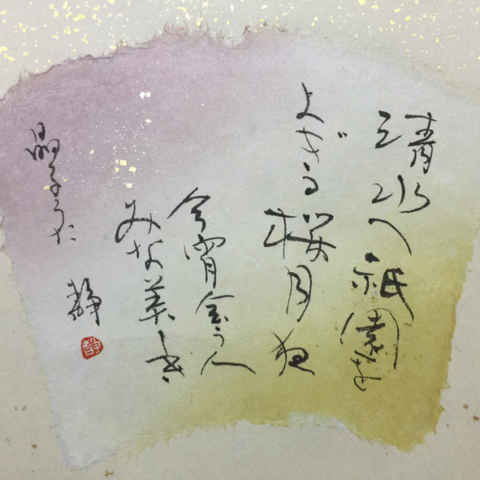 清水へ祇園を
よぎる桜月夜
今宵会う人
みな美しき
晶子うた
静